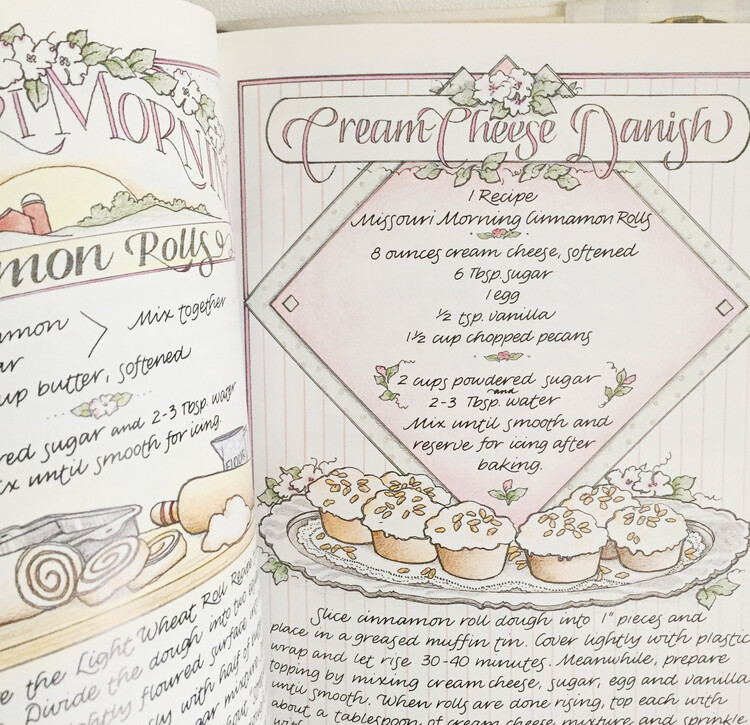 MORNIN
Rolls
Mix together
up butter, softened
sugar and 2-3 Tbsp. water
until smooth for icing.
FLOUR
the Light Wheat Roll
Divide the dough into two
floured surface
with half of
Cream Cheese Danish
1 Recipe
Missouri Morning Cinnamon Rolls
8 ounces cream cheese, softened
6 Tbsp. sugar
1 egg
1/2 tsp. vanilla
1 1/2 cup chopped pecans
2 cups powdered sugar
and
2-3 Tbsp. water
Mix until smooth and
reserve for icing after
baking.
Slice cinnamon roll dough into 1" pieces and
place in a greased muffin tin. Cover lightly with plastic
wrap and let rise 30-40 minutes. Meanwhile, prepare
topping by mixing cream cheese, sugar, egg and vanilla
until smooth. When rolls are done rising, top each with
about a tablespoon of cream cheese mixture and sprinkle